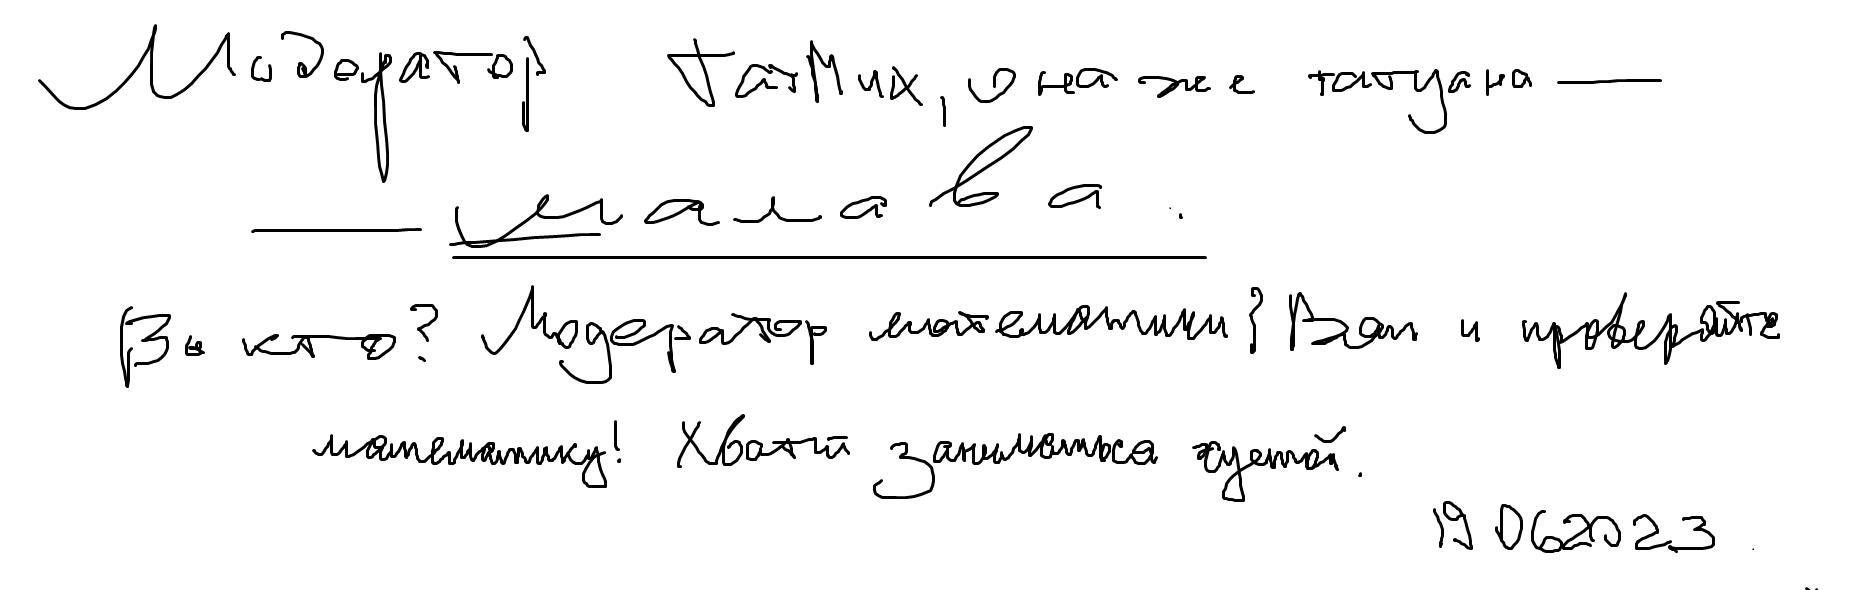 Модератор ТатМих, она же татуана —
— шалава.
Вы кто? Модератор математики? Вот и проверяйте
математику! Хватит заниматься хуетой.
19 06 2023